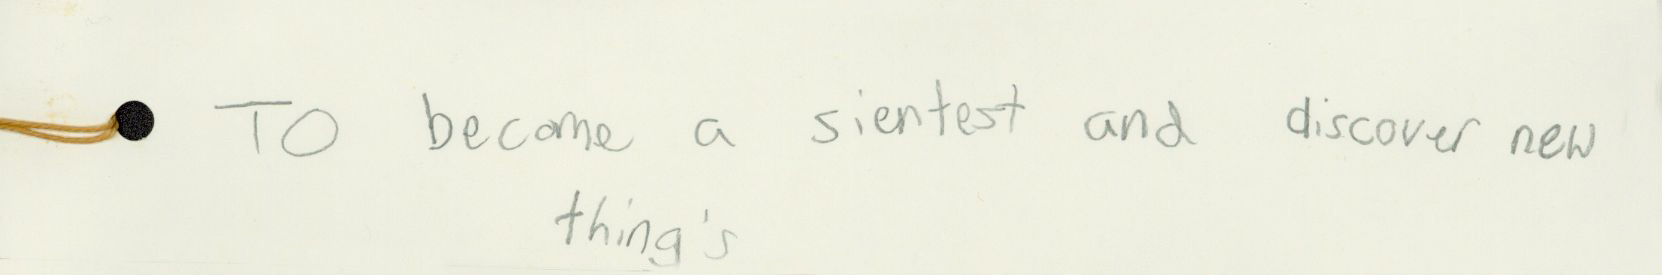 TO become a sientest and discover new
thing's